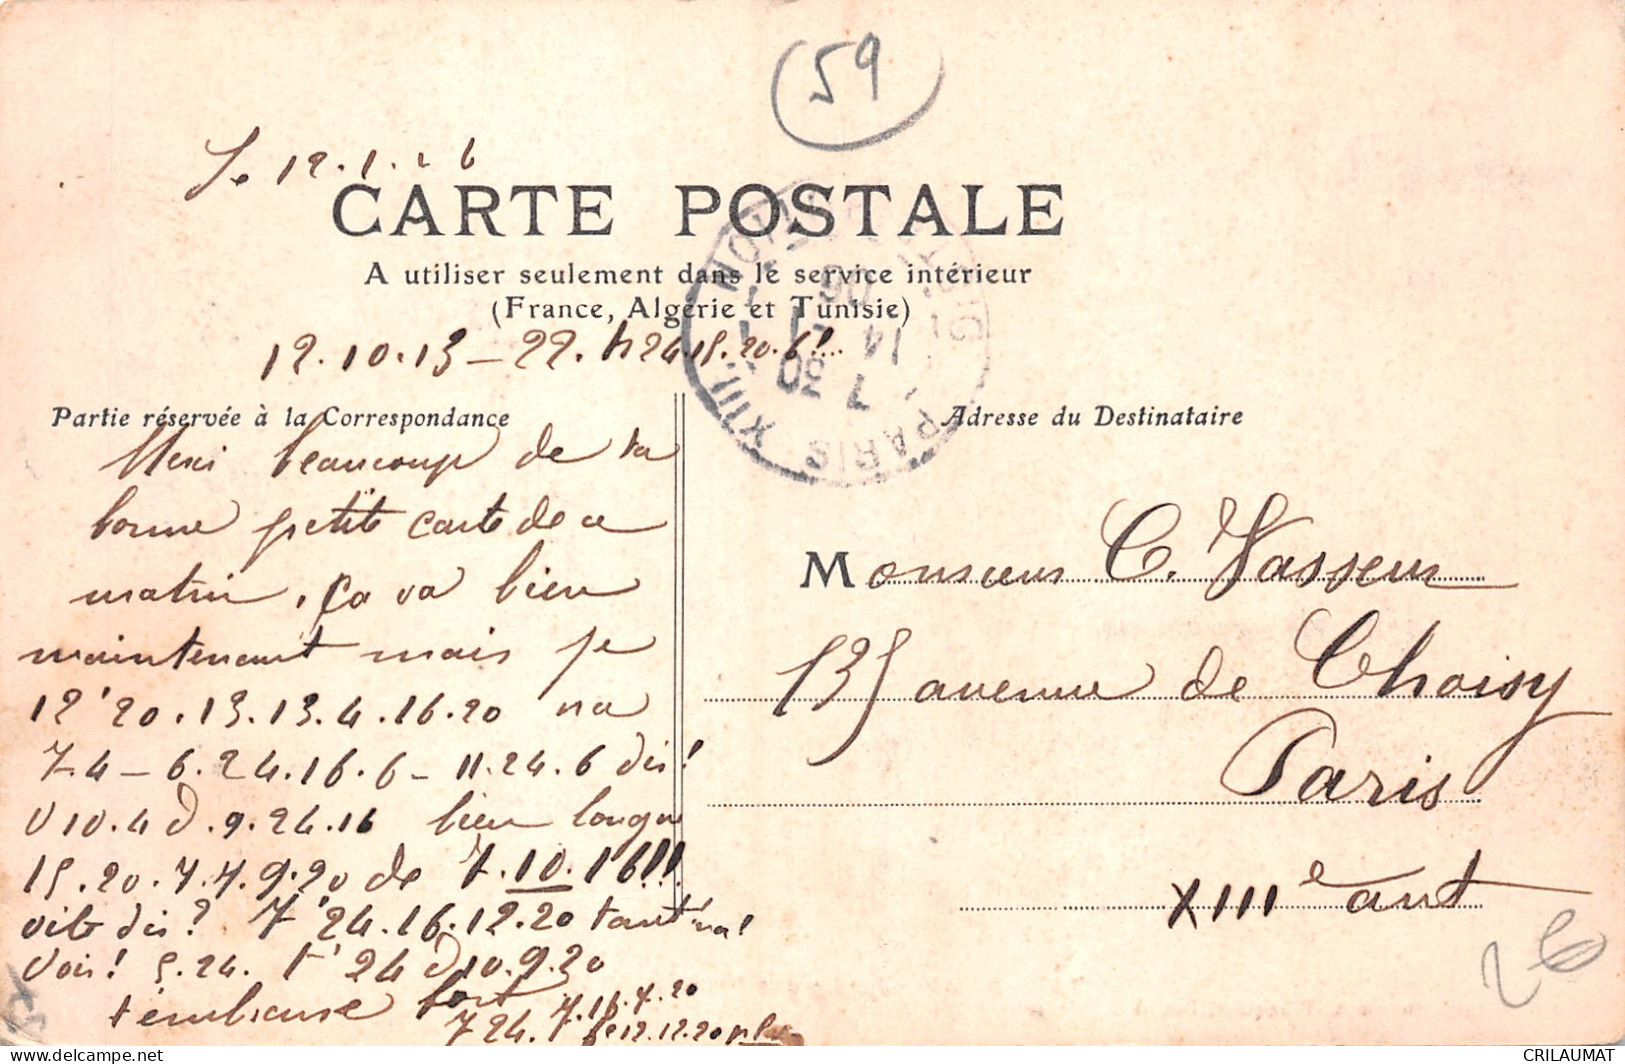 59
Le 12.1.
CARTE POSTALE
A utiliser seulement dans le service intérieur
(France, Algérie et Tunisie)
12.10.13 – 22. h 24.15.20.6!...
Partie réservée à la Correspondance
Adresse du Destinataire
Merci beaucoup de ta
bonne petite carte de ce
matin, ça va bien
maintenant mais je
12'20.13.13.4.16.20 na
7.4 – 6.24.16.6 – 11.24.6 dis!
V10.4 d.9.24.16 bien longue
15.20.7.7.9.20 de 7.10.16!!!
vite dis? 7'24.16.12.20 tant na!
Vois! 5.24. t'24 d10.9.20
t'embrasse fort 7.16.7.20
724. 12.12.20 plus
Monsieur C. Vasseur
135 avenue de Choisy
Paris
XIIIe arrt
PARIS XIII
7 30
14
26
CRILAUMAT